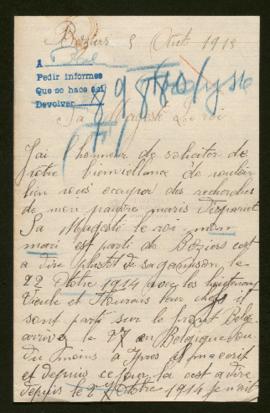 Béziers 3 Août 1918
A
Pedir informes
Que se hace así
Devolver
Sa Majesté Le roi
J'ai l'honneur de solicitér de
votre bienveillance de vouloir
bien vous ocuper des recherches
de mon pauvre maris disparut
Sa Magesté le roi mon
mari est parti de Béziers cest
a dire plustot de sa garnison, le
22 Octbre 1914 avec les lieutenant
et leur chef il
sont parti sur le front Belge
arrivé le 27 en Belgique ou
du moins a Ipres et ma ecrit
et depuis ce jour la cest a dire
depuis le 27 Octobre 1914 je n'ait